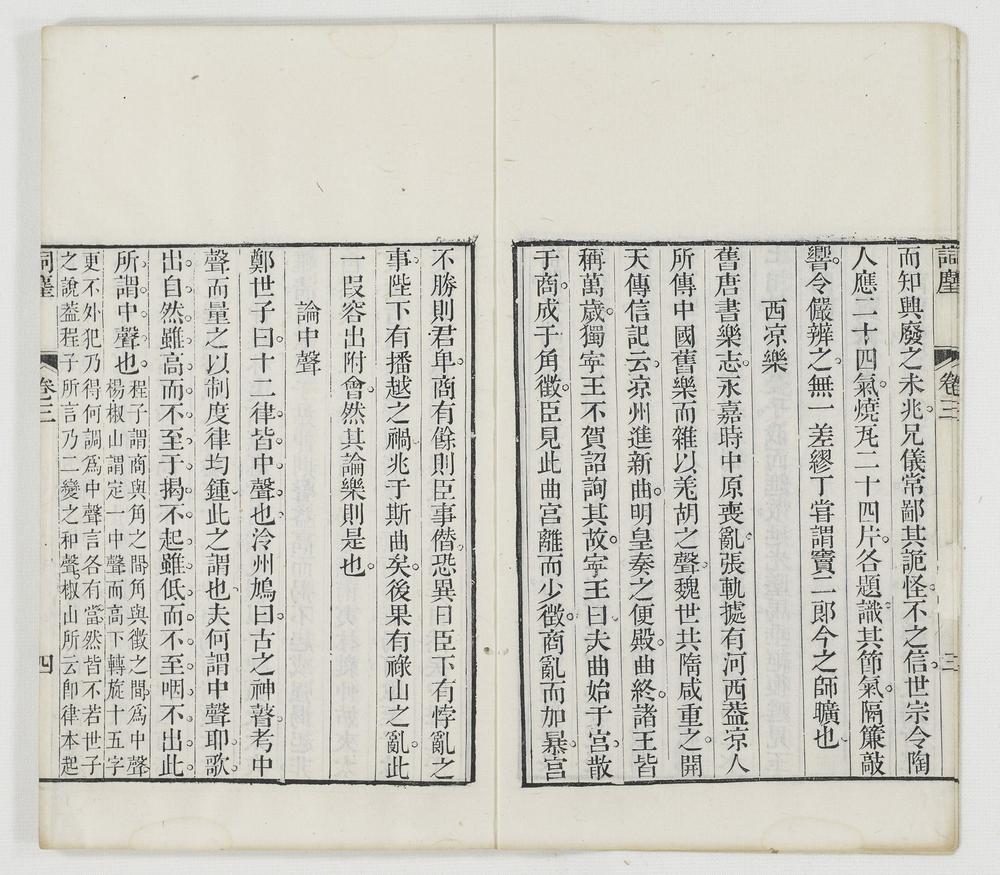 詞麈 卷三 三
而知興廢之未兆兄儀常鄙其詭怪不之信世宗令陶
人應二十四氣燒瓦二十四片各題識其節氣隔簾敲
響令儼辨之無一差繆丁甞謂竇二郎今之師曠也
西凉樂
舊唐書樂志永嘉時中原喪亂張軌據有河西葢凉人
所傳中國舊樂而雜以羌胡之聲魏世共隋咸重之開
天傳信記云凉州進新曲明皇奏之便殿曲終諸王皆
稱萬歲獨寜王不賀詔詢其故寜王曰夫曲始于宫散
于商成于角徵臣見此曲宫離而少徵商亂而加暴宫
不勝則君卑商有餘則臣事僭恐異日臣下有悖亂之
事陛下有播越之禍兆于斯曲矣後果有祿山之亂此
一叚容出附會然其論樂則是也
論中聲
鄭世子曰十二律皆中聲也泠州鳩曰古之神瞽考中
聲而量之以制度律均鍾此之謂也夫何謂中聲耶歌
出自然雖高而不至于揭不起雖低而不至咽不出此
所謂中聲也程子謂商與角之間角與徵之間爲中聲
楊椒山謂定一中聲而高下轉旋十五字
更不外犯乃得何調爲中聲言各有當然皆不若世子
之說葢程子所言乃二變之和聲椒山所云卽律本起
詞麈 卷三 四